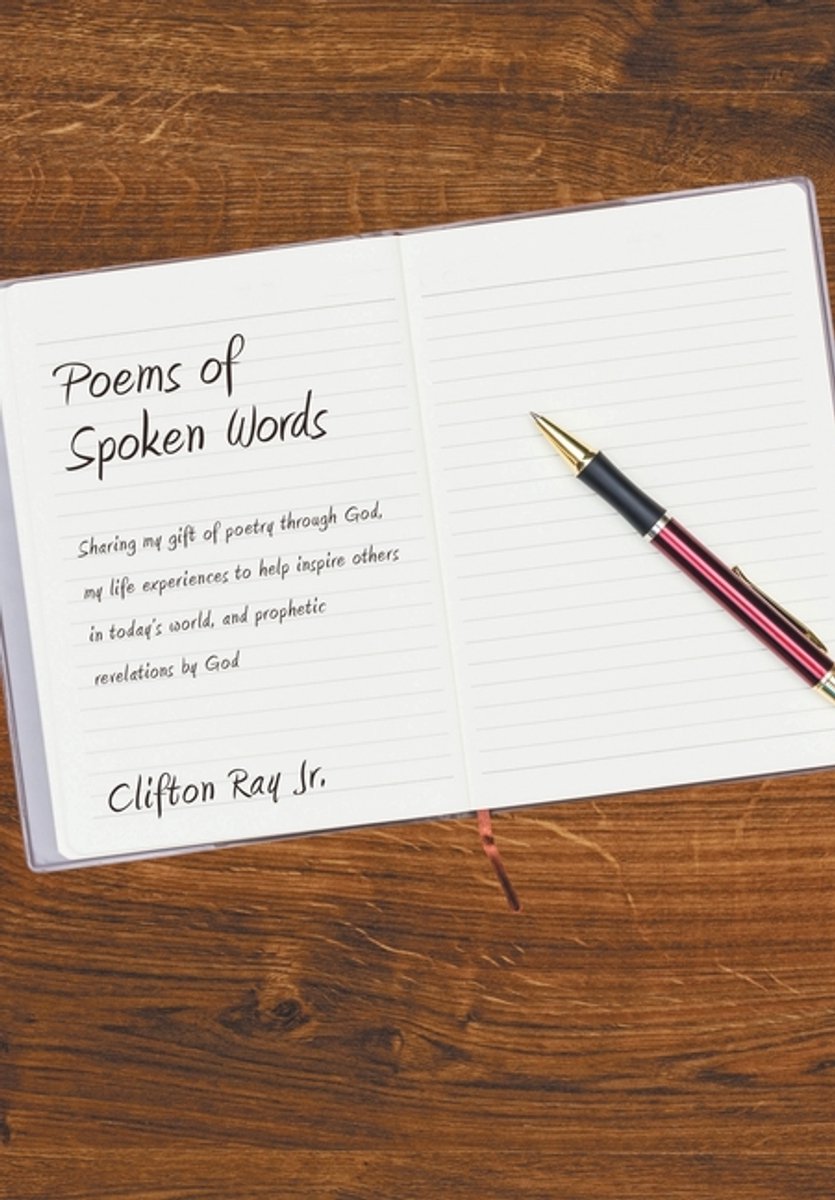 Poems of
Spoken Words
Sharing my gift of poetry through God,
my life experiences to help inspire others
in today's world, and prophetic
revelations by God
Clifton Ray Jr.